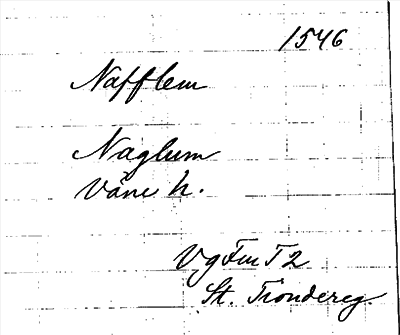 1546
Nafflem
Naglum
Väne h.
Vg Fm T 2
St. Trondereg.